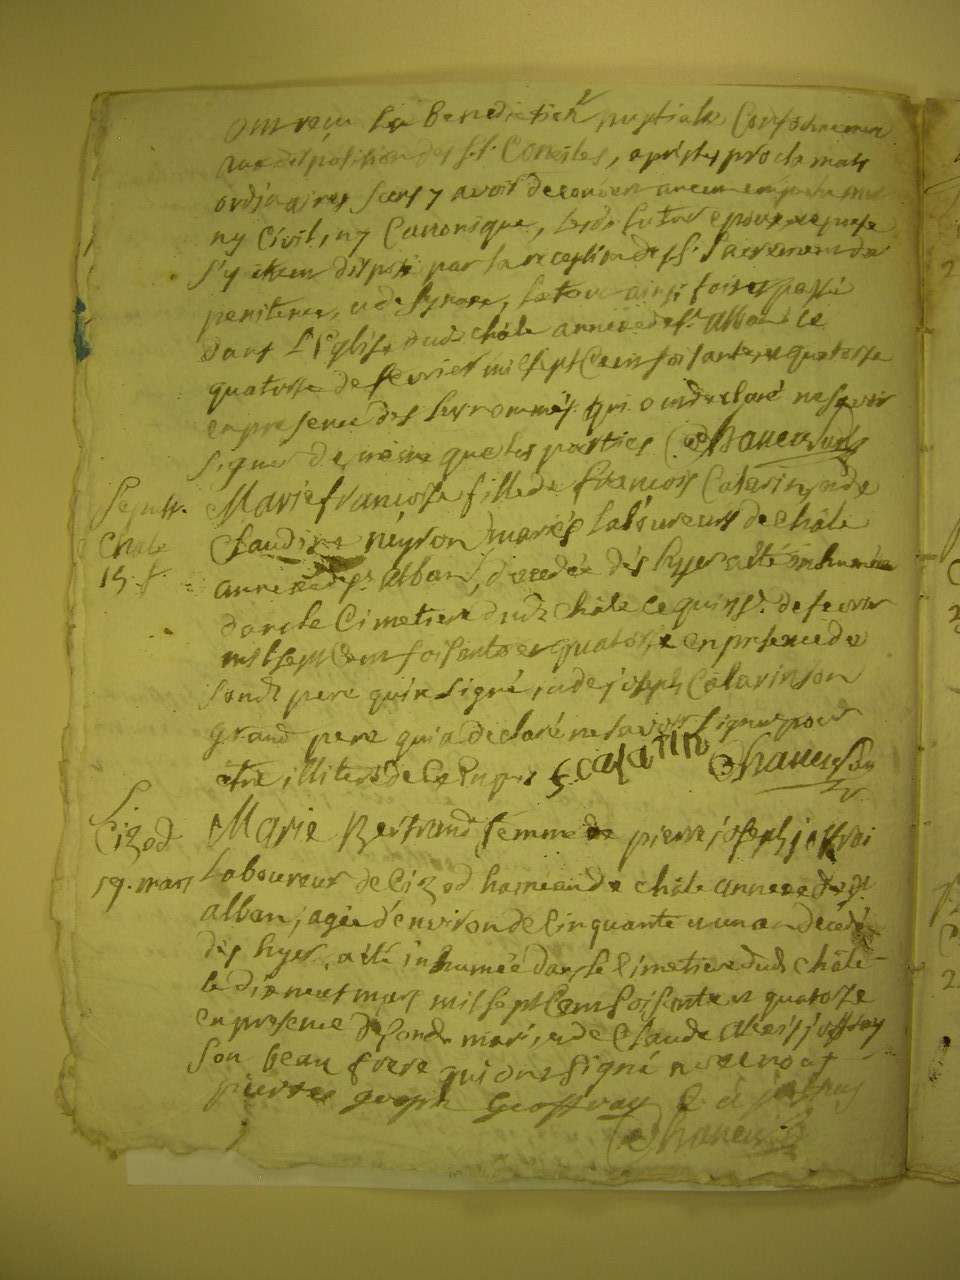 ont reçu la benediction nuptiale Conformement
aux dispositions des S.S. Conciles, après les proclamats
ordinaires sans y avoir decouvert aucun empechement
ny Civil, ny Canonique, lesdits futurs epoux
s'y étant disposé par la reception des SS. Sacrements de
penitence, et de, le tout ainsi fait et passé
dans L'Eglise dudt châle annexe de St. Alban le
quatorse de fevrier mil sept Cent soisante et quatorse
en presence des susnommés qui ont declaré ne sçavoir
signer de même que les parties
Sepult. Marie françoise fille de françois Catarin, et de
Chale Claudine neyron mariés laboureurs de châle
15 f. annexe de St. Alban, decedée dès hyer a été inhumée
dans le Cimetiere dudt. châle le quinse. de fevrier
mil sept Cent soisante et quatorse en presence de
sondt. pere qui a signé, et de joseph Catarin son
grand pere qui a declaré ne savoir signer pour
être illiteré de ce enquis
Cizod Marie Bertrand femme de pierre joseph joffroi
19. mars Laboureur de Cizod hameau de châle annexe de St.
alban, agée d'environ de Cinquante et un an decedée
dès hyer, a été inhumée dans le Cimetiere dudt châle
le dix neuf mars mil sept Cent soisante et quatorse
en presence de sondt. mari, et de Claude joffray
son beau frere qui ont signé
pierre joseph Geoffray